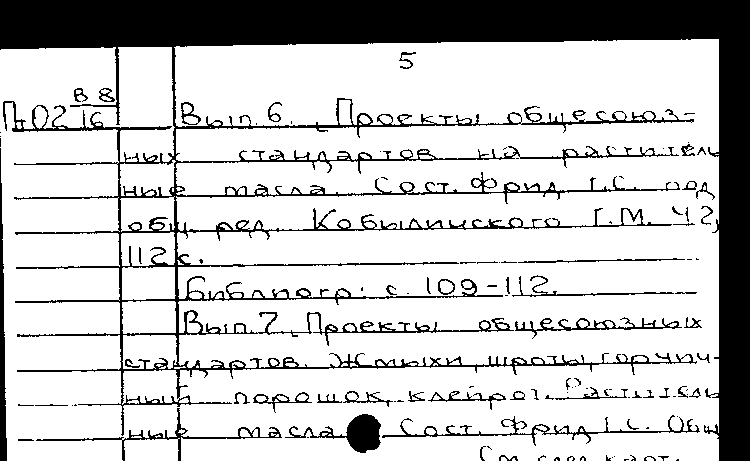 5
В 8
П-02 16 Вып. 6. Проекты общесоюз-
ных стандартов на раститель
ные масла. Сост. Фрид Г.С. под
общ. ред. Кобылинского Г.М. Ч 2,
112 с.
Библиогр: с. 109-112.
Вып. 7. Проекты общесоюзных
стандартов. Жмыхи, шроты, горчич-
ный порошок, клейрот. Раститель
ные масла. Сост. Фрид Г.С. Общ
См. след. карт.